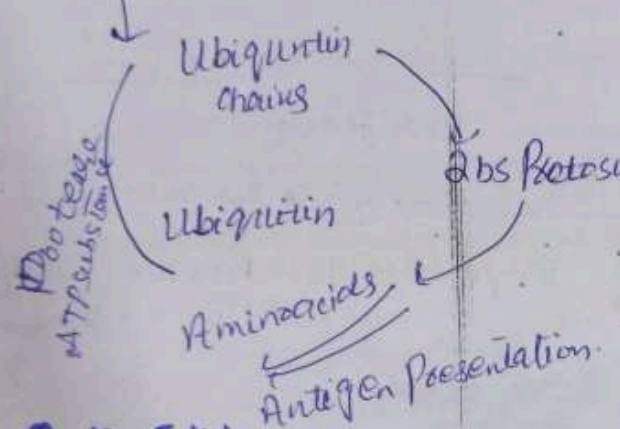 Ubiquitin
chains
26s Protosu
Protease
ATP substance
Ubiquitin
Aminoacids
Antigen Presentation.